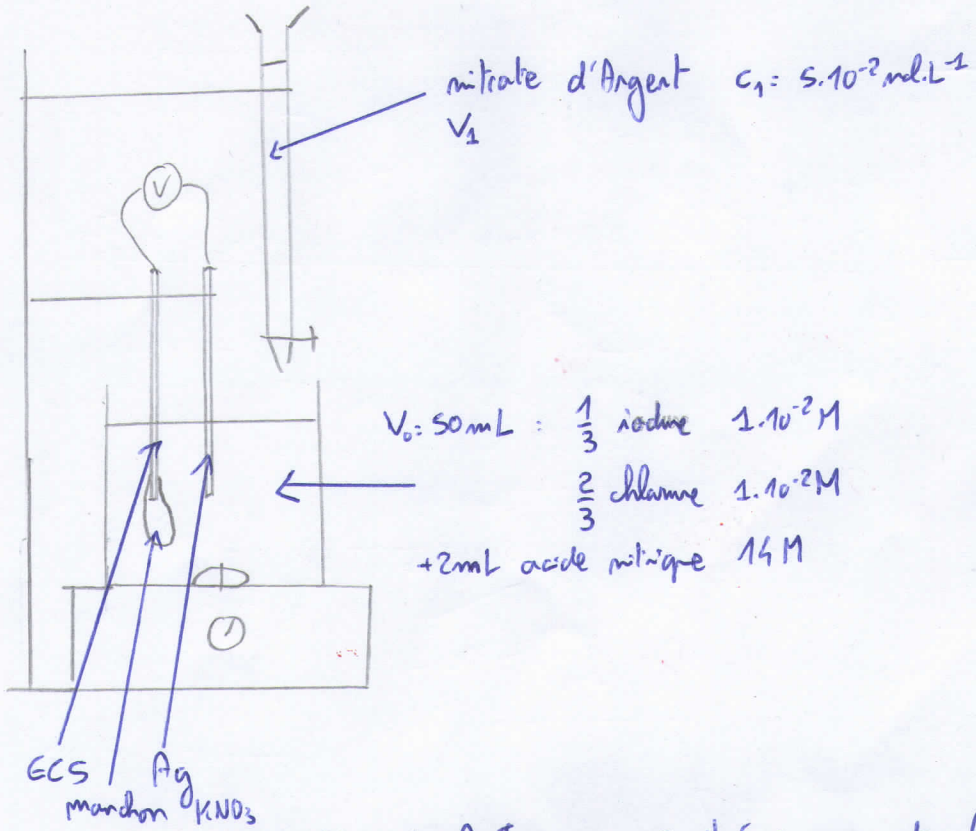 nitrate d'Argent c₁ = 5.10⁻² mol.L⁻¹
V₁
V
V₀ = 50 mL : 1/3 iodure 1.10⁻² M
2/3 chlorure 1.10⁻² M
+ 2 mL acide nitrique 14 M
ECS
Ag
manchon KNO₃